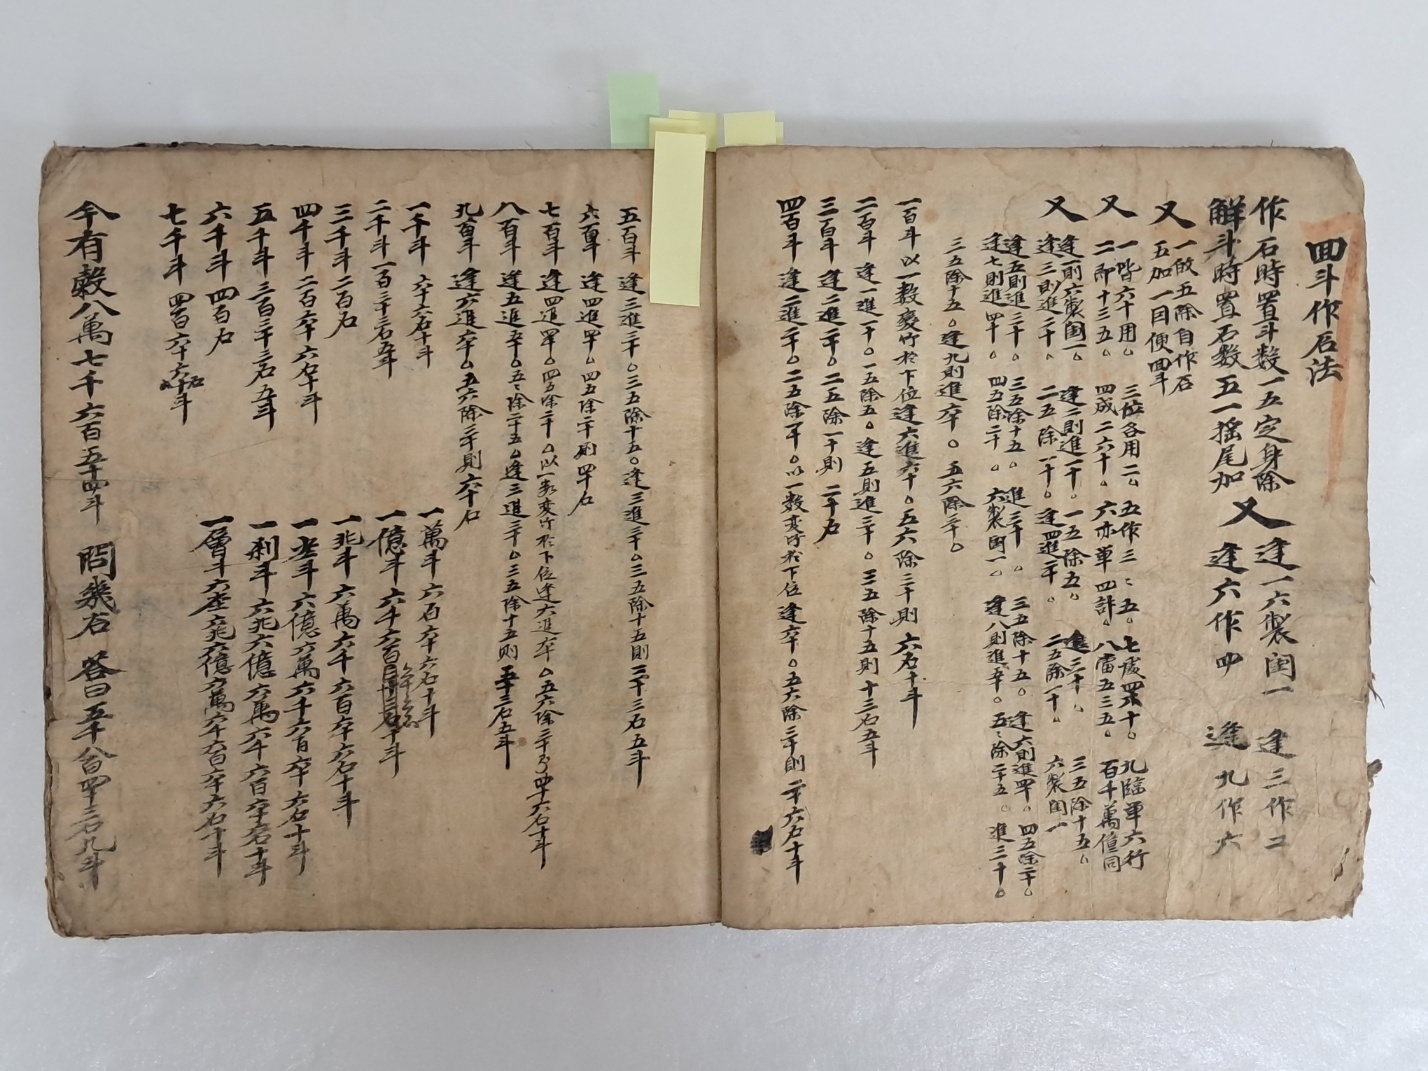 回斗作石法
作石時置斗数一五定身除
解斗時置石数五一搖尾加
又 逢一六製闰一 逢三作二
逢六作四 逢九作六
又 一放五除自作石
五加一目便回斗
又 一階六十用。三位各用二。五作三三五。七處四界十。九臨單六行
二即十三五。四成二六十。六亦單四計。八當五三五。百千萬億同
又 逢一則六製闰一。逢二則進一十。一五除五。進三十。三五除十五。
逢三則進二十。二五除一十。逢四進二十。二五除一十。六製闰一
逢五則進三十。三五除十五。進三十。三五除十五。逢六則進四十。四五除二十。
逢七則進四十。四五除二十。六製闰一。逢八則進五十。五五除二十五。進三十。
三五除十五。逢九則進六十。五六除三十。
一百斗以一数变作於下位逢六進六十。五六除三十則 六石十斗
二百斗 逢一進一十。一五除五。逢五則進三十。三五除十五則十三石五斗
三百斗 逢二進二十。二五除一十則 二十石
四百斗 逢二進二十。二五除一十。以一数变作於下位 逢六十。五六除三十則 二十六石十斗
五百斗 逢三進三十。三五除十五。逢三進三十。三五除十五則三十三石五斗
六百斗 逢四進四十。四五除二十則 四十石
七百斗 逢四進四十。四五除二十。以一数变作於下位逢六進六十。五六除三十則四十六石十斗
八百斗 逢五進五十。五五除二十五。逢三進三十。三五除十五則 五十三石五斗
九百斗 逢六進六十。五六除三十則 六十石
一千斗 六十六石十斗
二千斗 一百三十三石五斗
三千斗 二百石
四千斗 二百六十六石十斗
五千斗 三百三十三石五斗
六千斗 四百石
七千斗 四百六十六石十斗
一萬斗 六百六十六石十斗
一億斗 六千六百六十六石十斗
一兆斗 六萬六千六百六十六石十斗
六億六萬六千六百六十六石十斗
一刹斗 六兆六億六萬六千六百六十六石十斗
一層斗 六兆六億六萬六千六百六十六石十斗
今有穀八萬七千六百五十四斗 問幾石 答曰五千八百四十三石九斗